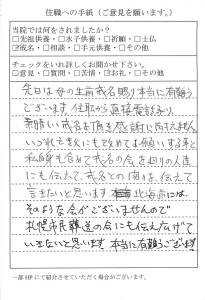 住職への手紙(ご意見を願います。)
当院では何をされましたか?
□先祖供養・□水子供養・□祈願・□土仏
☑戒名・□相談・□手元供養・□その他
チェックをいれ詳しくお聞かせ下さい。
□意見・□質問・□苦情・☑お礼・□その他
今日は母の生前戒名賜り本当に有難う
ございます。住職から直接電話より、
素晴しい戒名を頂き感謝に尽きません。
いづれ主人にも改めてお願いすると
私自身も含めて戒名の会を知り人達
にも伝えて、戒名との向は、伝えて
言きたいと思います 北海道には、
そのような会がございませんので
札幌市民葬送の会にも伝え広げて
いきたいと思います 本当に有難うございます!
一部HPにて紹介させていただく場合がございます。